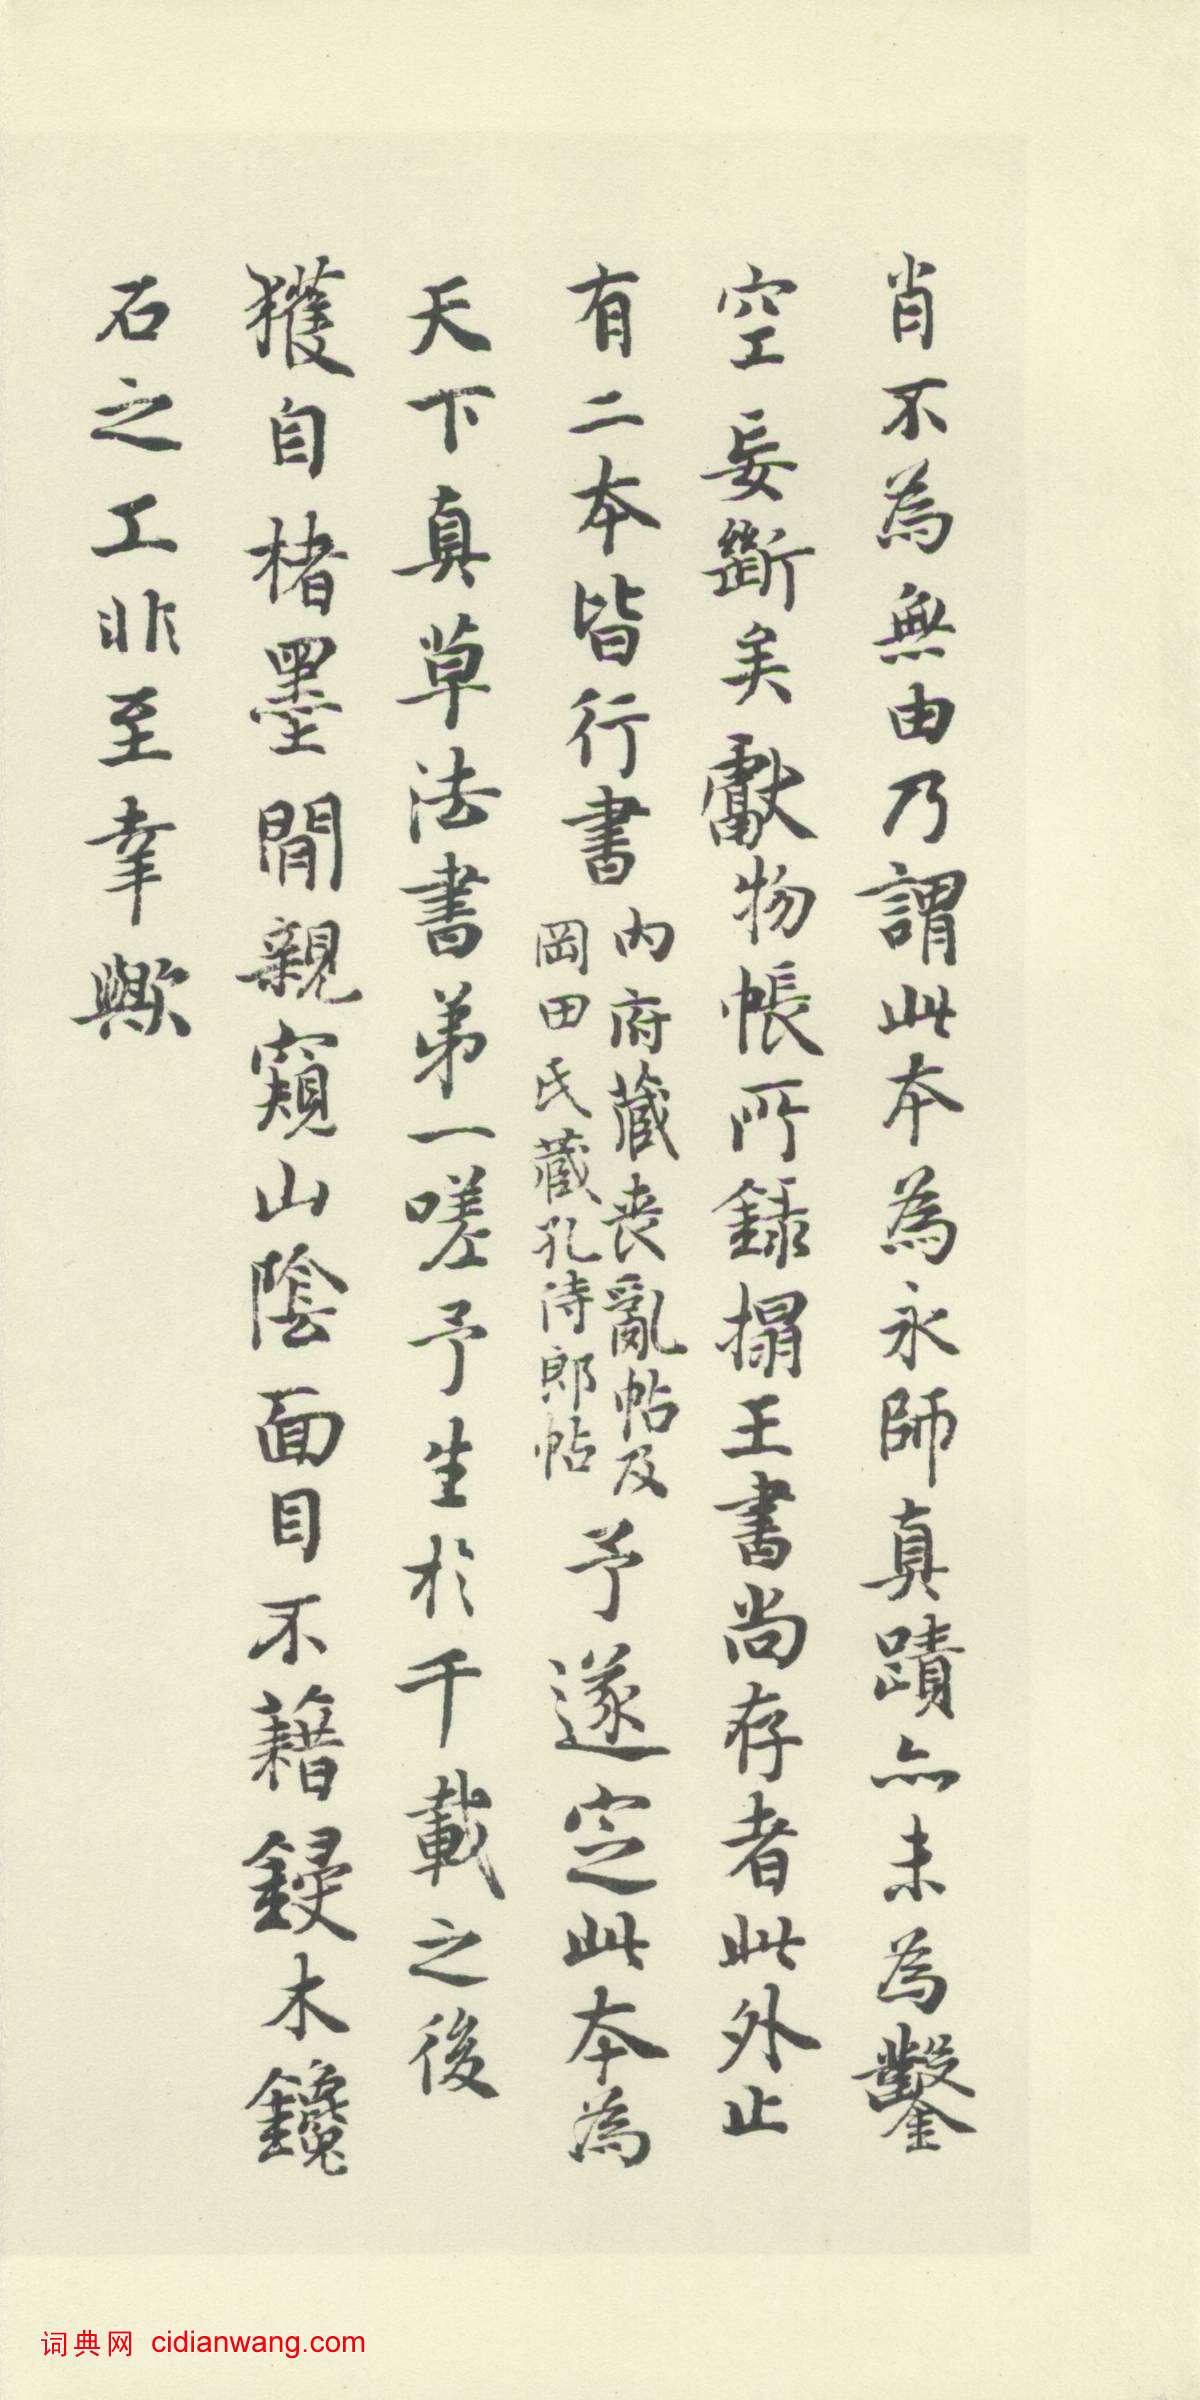 肖不為無由乃謂此本為永師真蹟亦未為鑿
空妄斷矣獻物帳所錄搨王書尚存者此外止
有二本皆行書
內府藏喪亂帖及
岡田氏藏孔侍郎帖
予遂定此本為
天下真草法書第一嗟予生於千載之後
獲自楮墨間親窺山陰面目不藉鋟木鑱
石之工非至幸歟
词典网 cidianwang.com